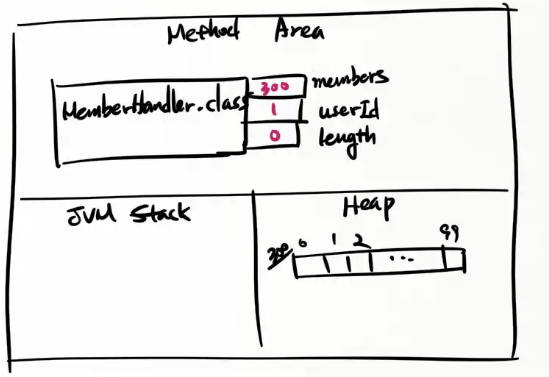 Method Area
MemberHandler.class
300 members
1 userId
0 length
JVM Stack
Heap
300 0 1 2 ... 99